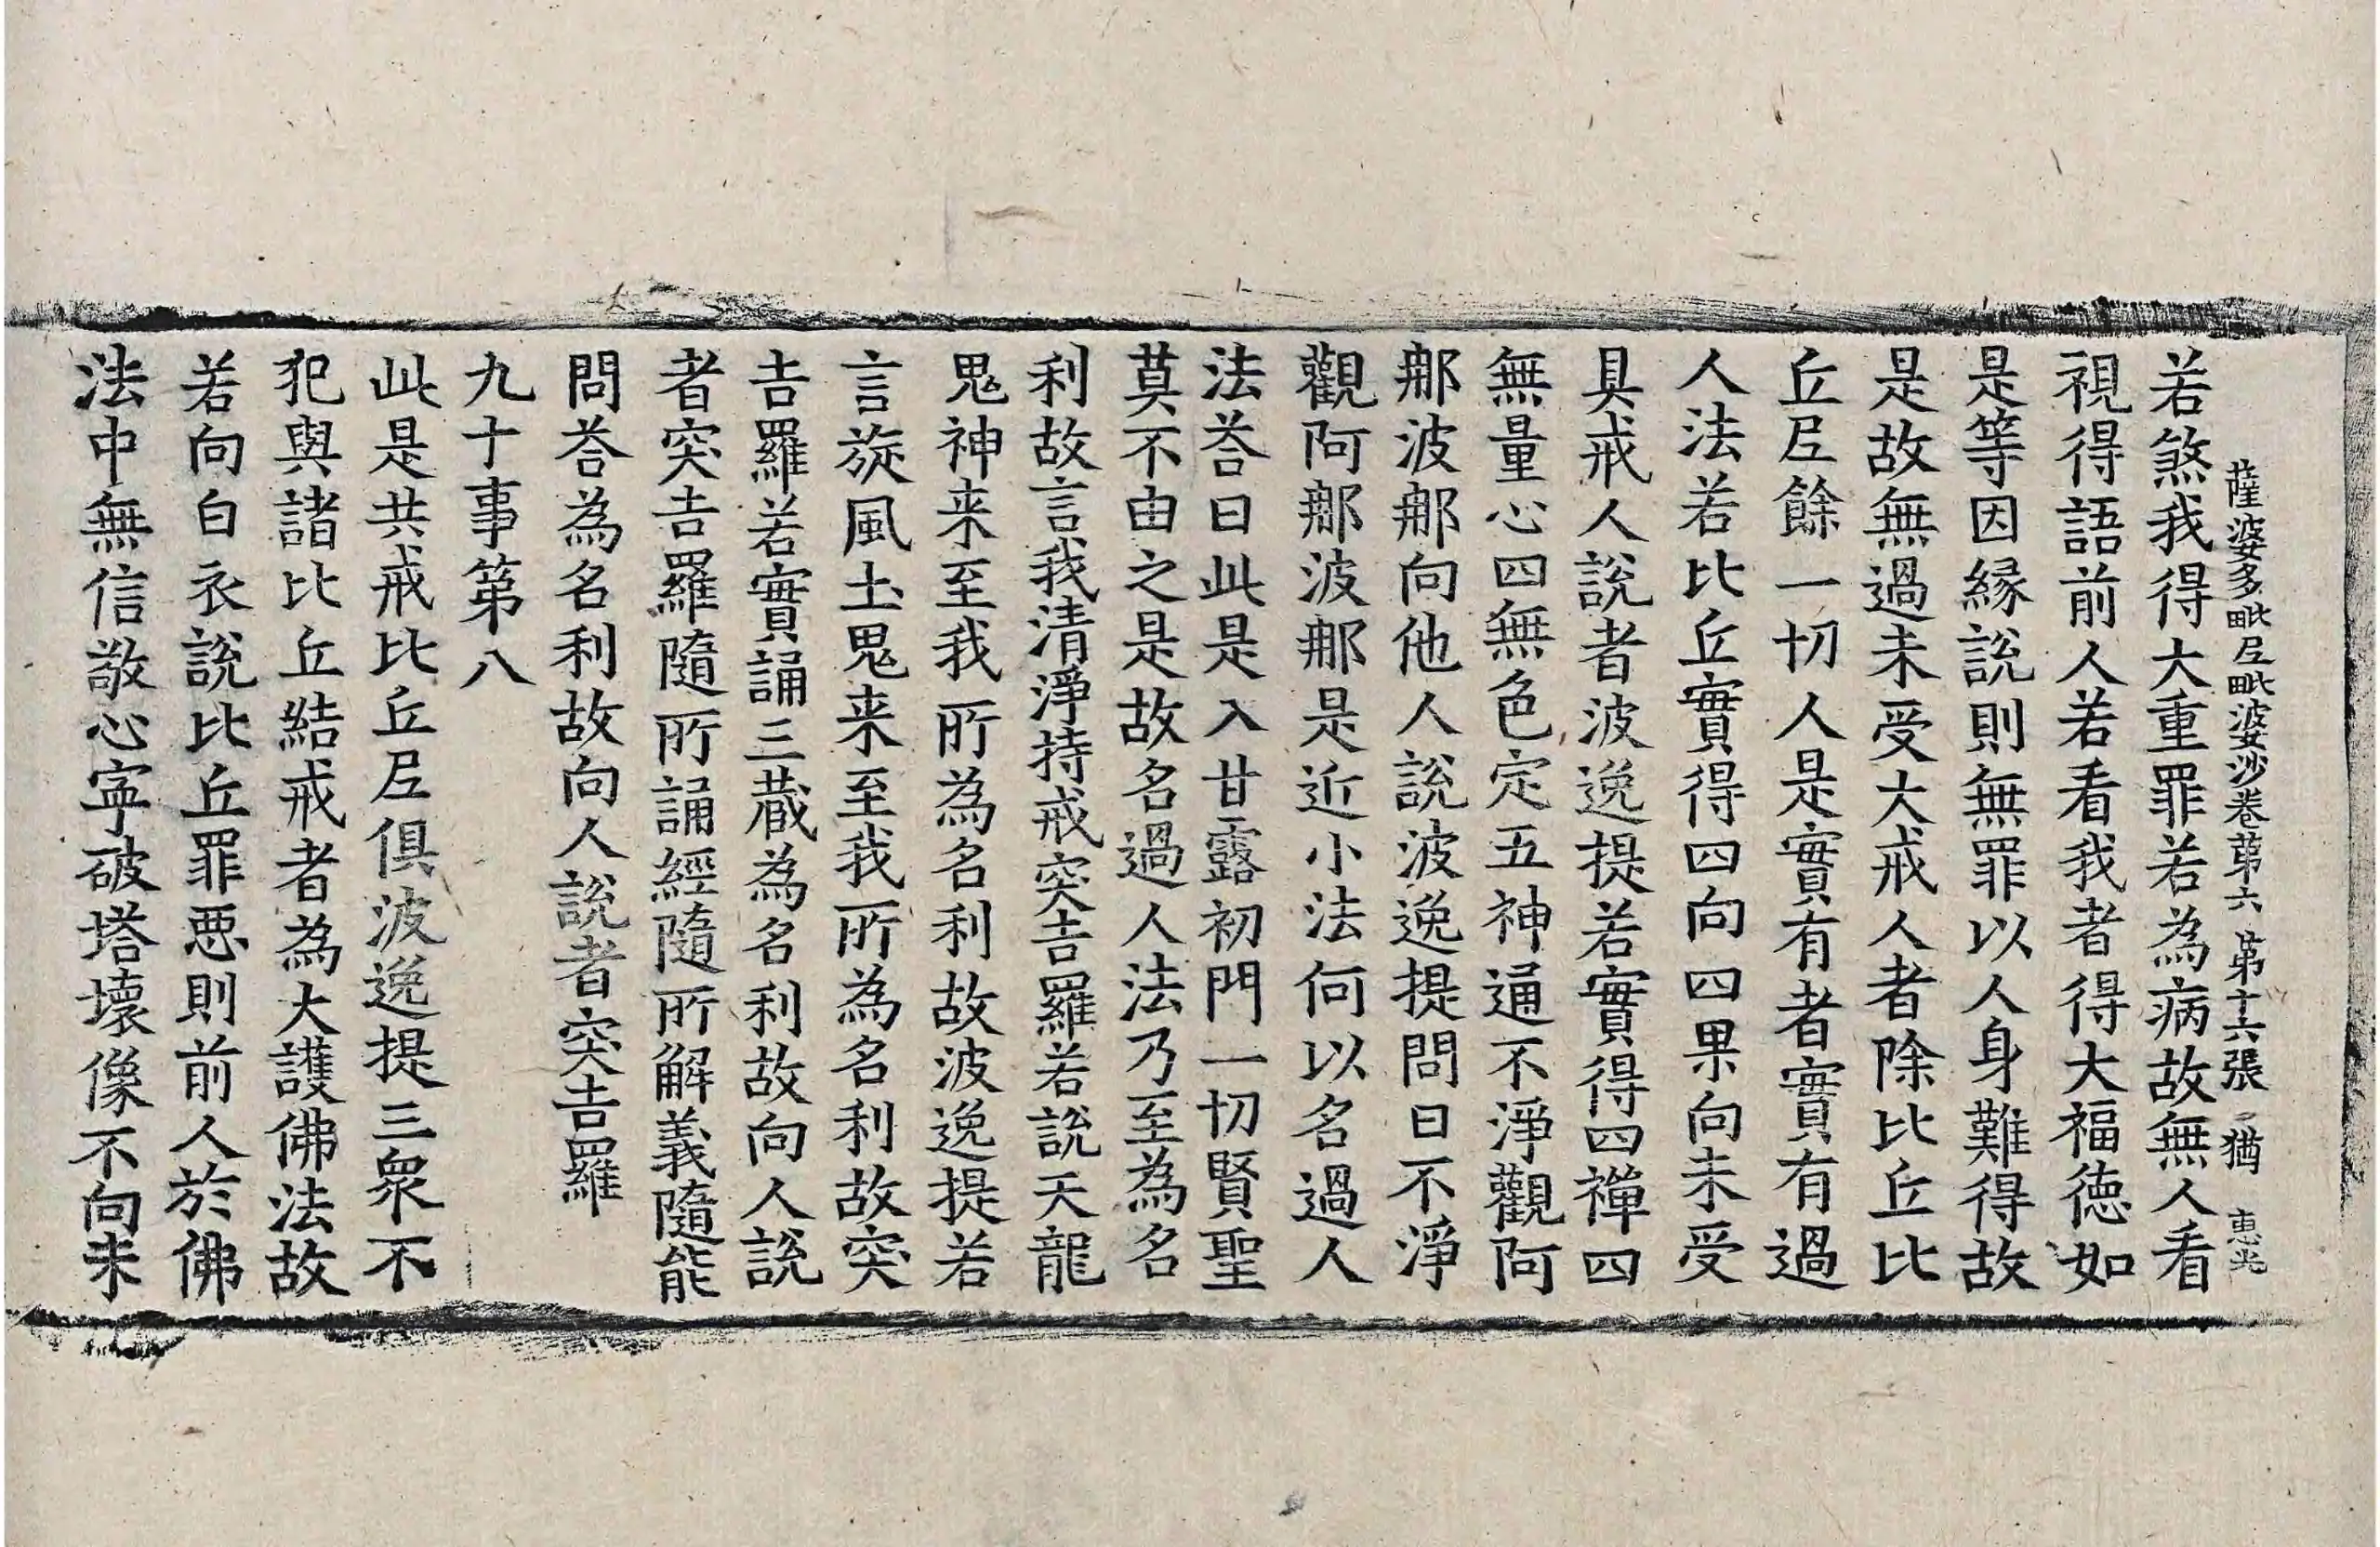 薩婆多毗尼毗婆沙卷第六 第十六張 猶 惠光
若煞我得大重罪若為病故無人看
視得語前人若看我者得大福德如
是等因緣說則無罪以人身難得故
是故無過未受大戒人者除比丘比
丘尼餘一切人是實有者實有過
人法若比丘實得四向四果向未受
具戒人說者波逸提若實得四禪四
無量心四無色定五神通不淨觀阿
那波那向他人說波逸提問曰不淨
觀阿那波那是近小法何以名過人
法荅曰此是入甘露初門一切賢聖
莫不由之是故名過人法乃至為名
利故言我清淨持戒突吉羅若說天龍
鬼神来至我所為名利故波逸提若
言旋風土鬼来至我所為名利故突
吉羅若實誦三藏為名利故向人說
者突吉羅隨所誦經隨所解義隨能
問荅為名利故向人說者突吉羅
九十事第八
此是共戒比丘尼俱波逸提三衆不
犯與諸比丘結戒者為大護佛法故
若向白衣說比丘罪惡則前人於佛
法中無信敬心寧破塔壞像不向未